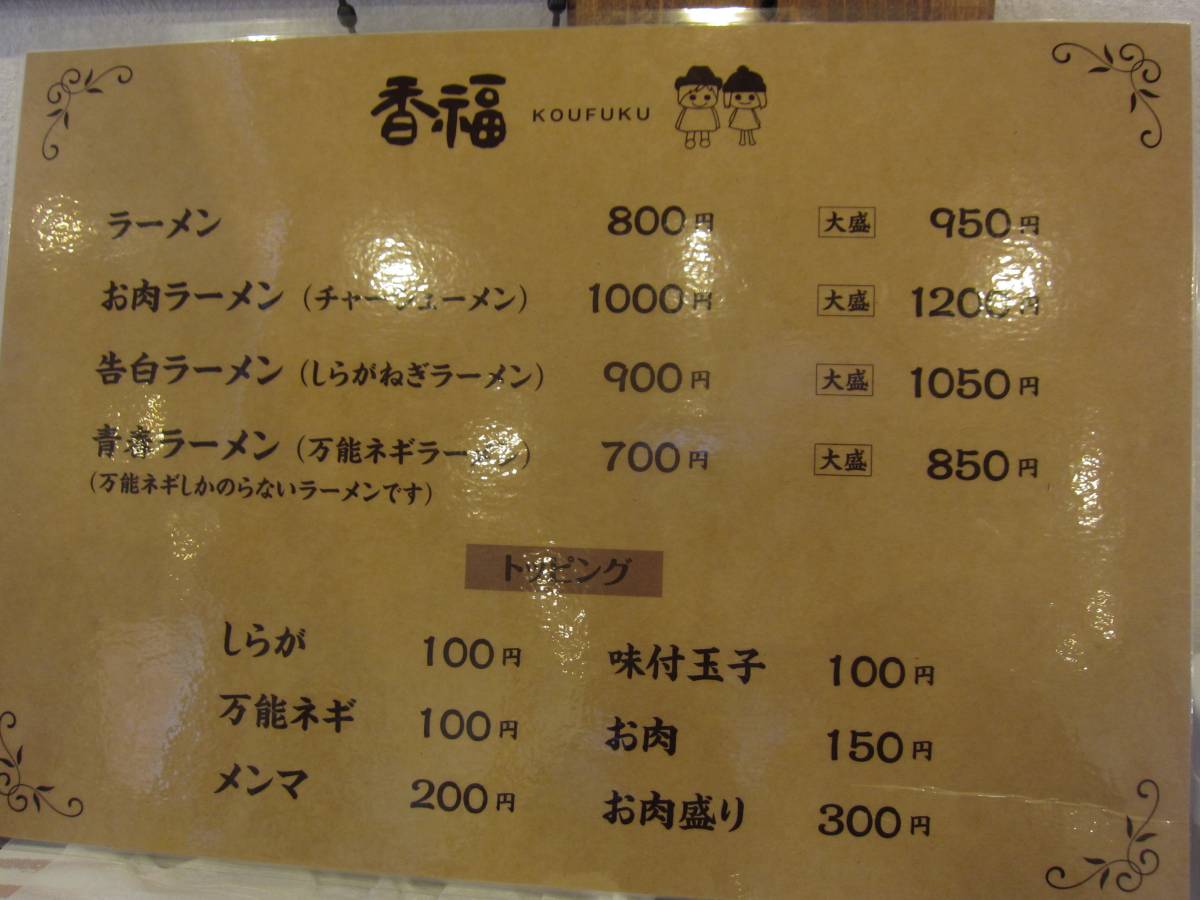 香福 KOUFUKU
ラーメン 800円 大盛 950円
お肉ラーメン (チャーシューメン) 1000円 大盛 1200円
告白ラーメン (しらがねぎラーメン) 900円 大盛 1050円
青春ラーメン (万能ネギラーメン) 700円 大盛 850円
(万能ネギしかのらないラーメンです)
トッピング
しらが 100円 味付玉子 100円
万能ネギ 100円 お肉 150円
メンマ 200円 お肉盛り 300円